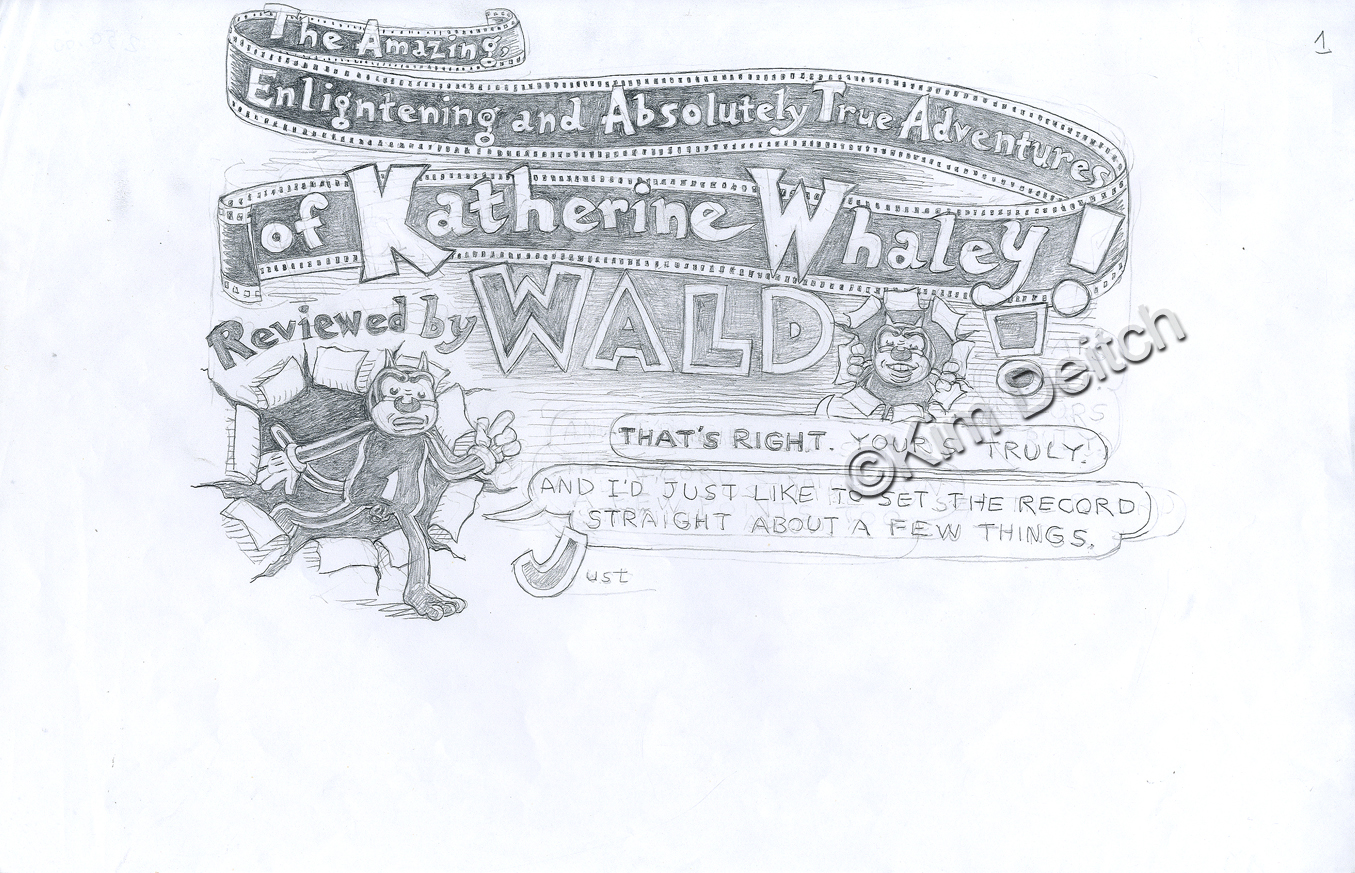 1
The Amazing,
Enligntening and Absolutely True Adventures
of Katherine Whaley!
Reviewed by WALDO!
THAT'S RIGHT. YOURS TRULY.
AND I'D JUST LIKE TO SET THE RECORD
STRAIGHT ABOUT A FEW THINGS.
Just
©Kim Deitch